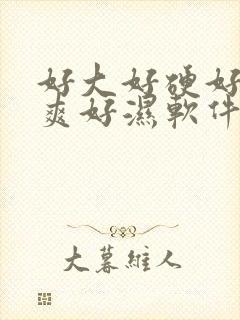 好大好硬好
爽好濕軟件
大暮維人